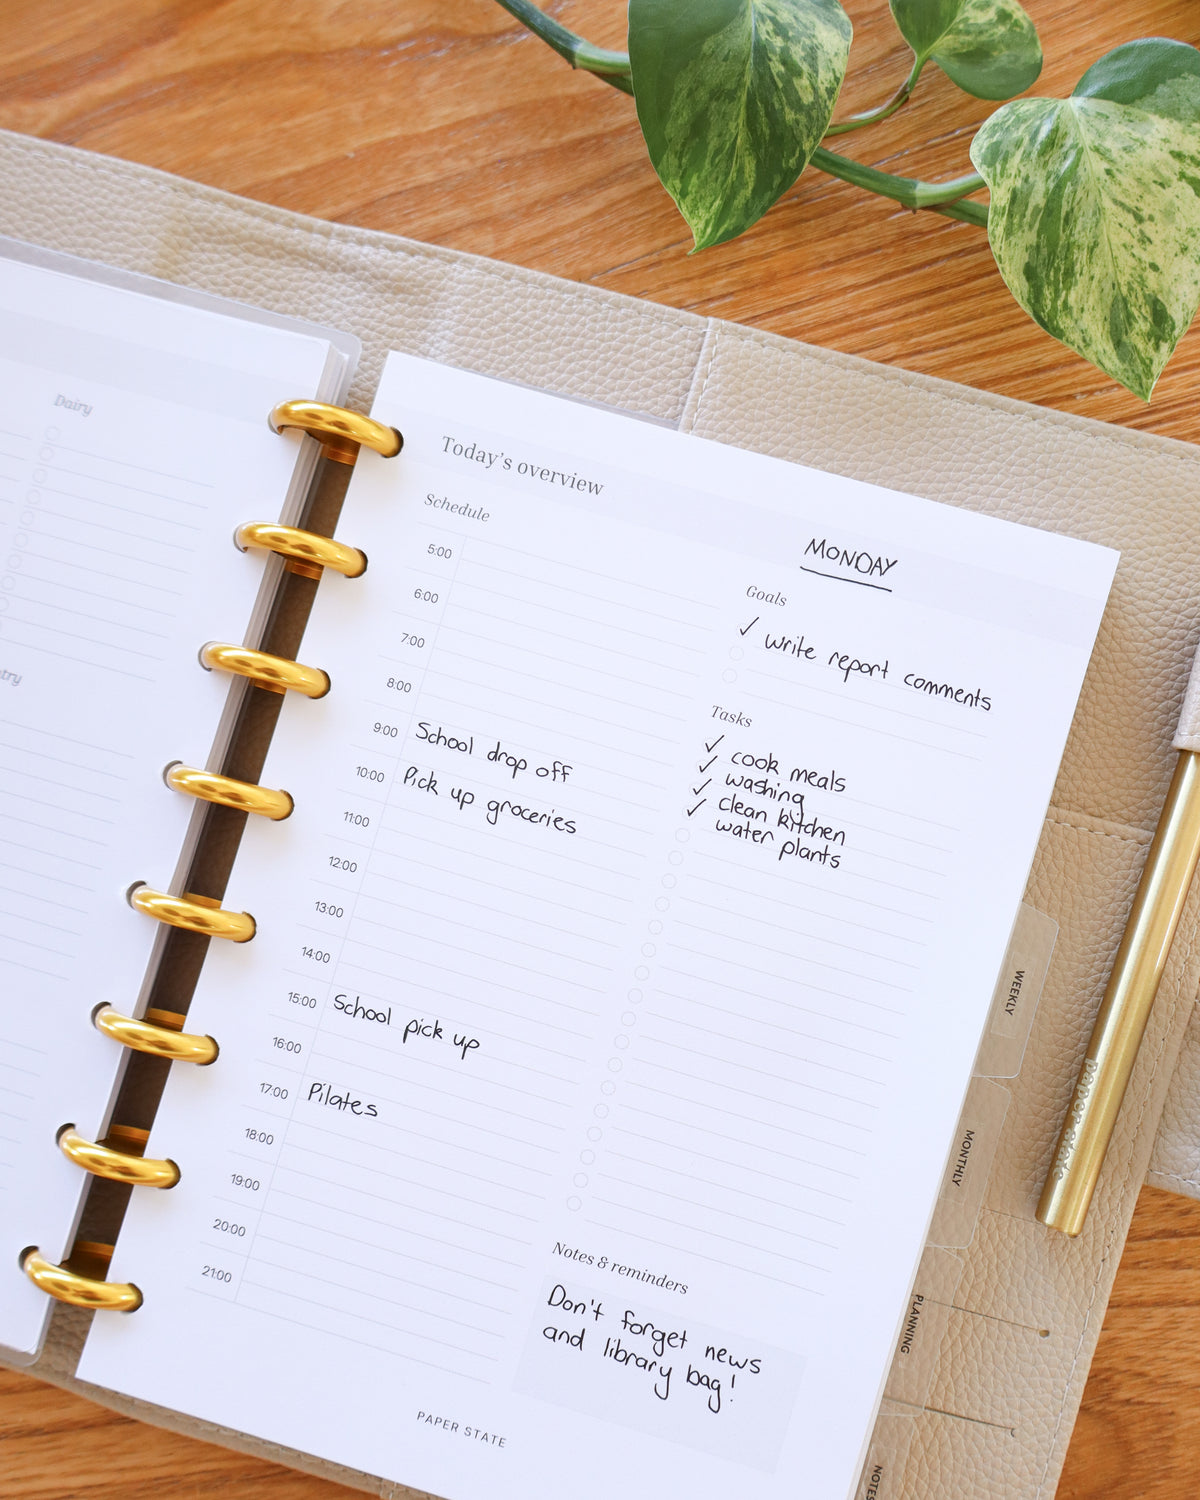 Dairy
Today's overview
MONDAY
Schedule
5:00
6:00
7:00
8:00
9:00 School drop off
10:00 Pick up groceries
11:00
12:00
13:00
14:00
15:00 School pick up
16:00
17:00 Pilates
18:00
19:00
20:00
21:00
Goals
✓ write report comments
Tasks
✓ cook meals
✓ washing
✓ clean kitchen
✓ water plants
Notes & reminders
Don't forget news
and library bag!
PAPER STATE
WEEKLY
MONTHLY
PLANNING
NOTES
paper state